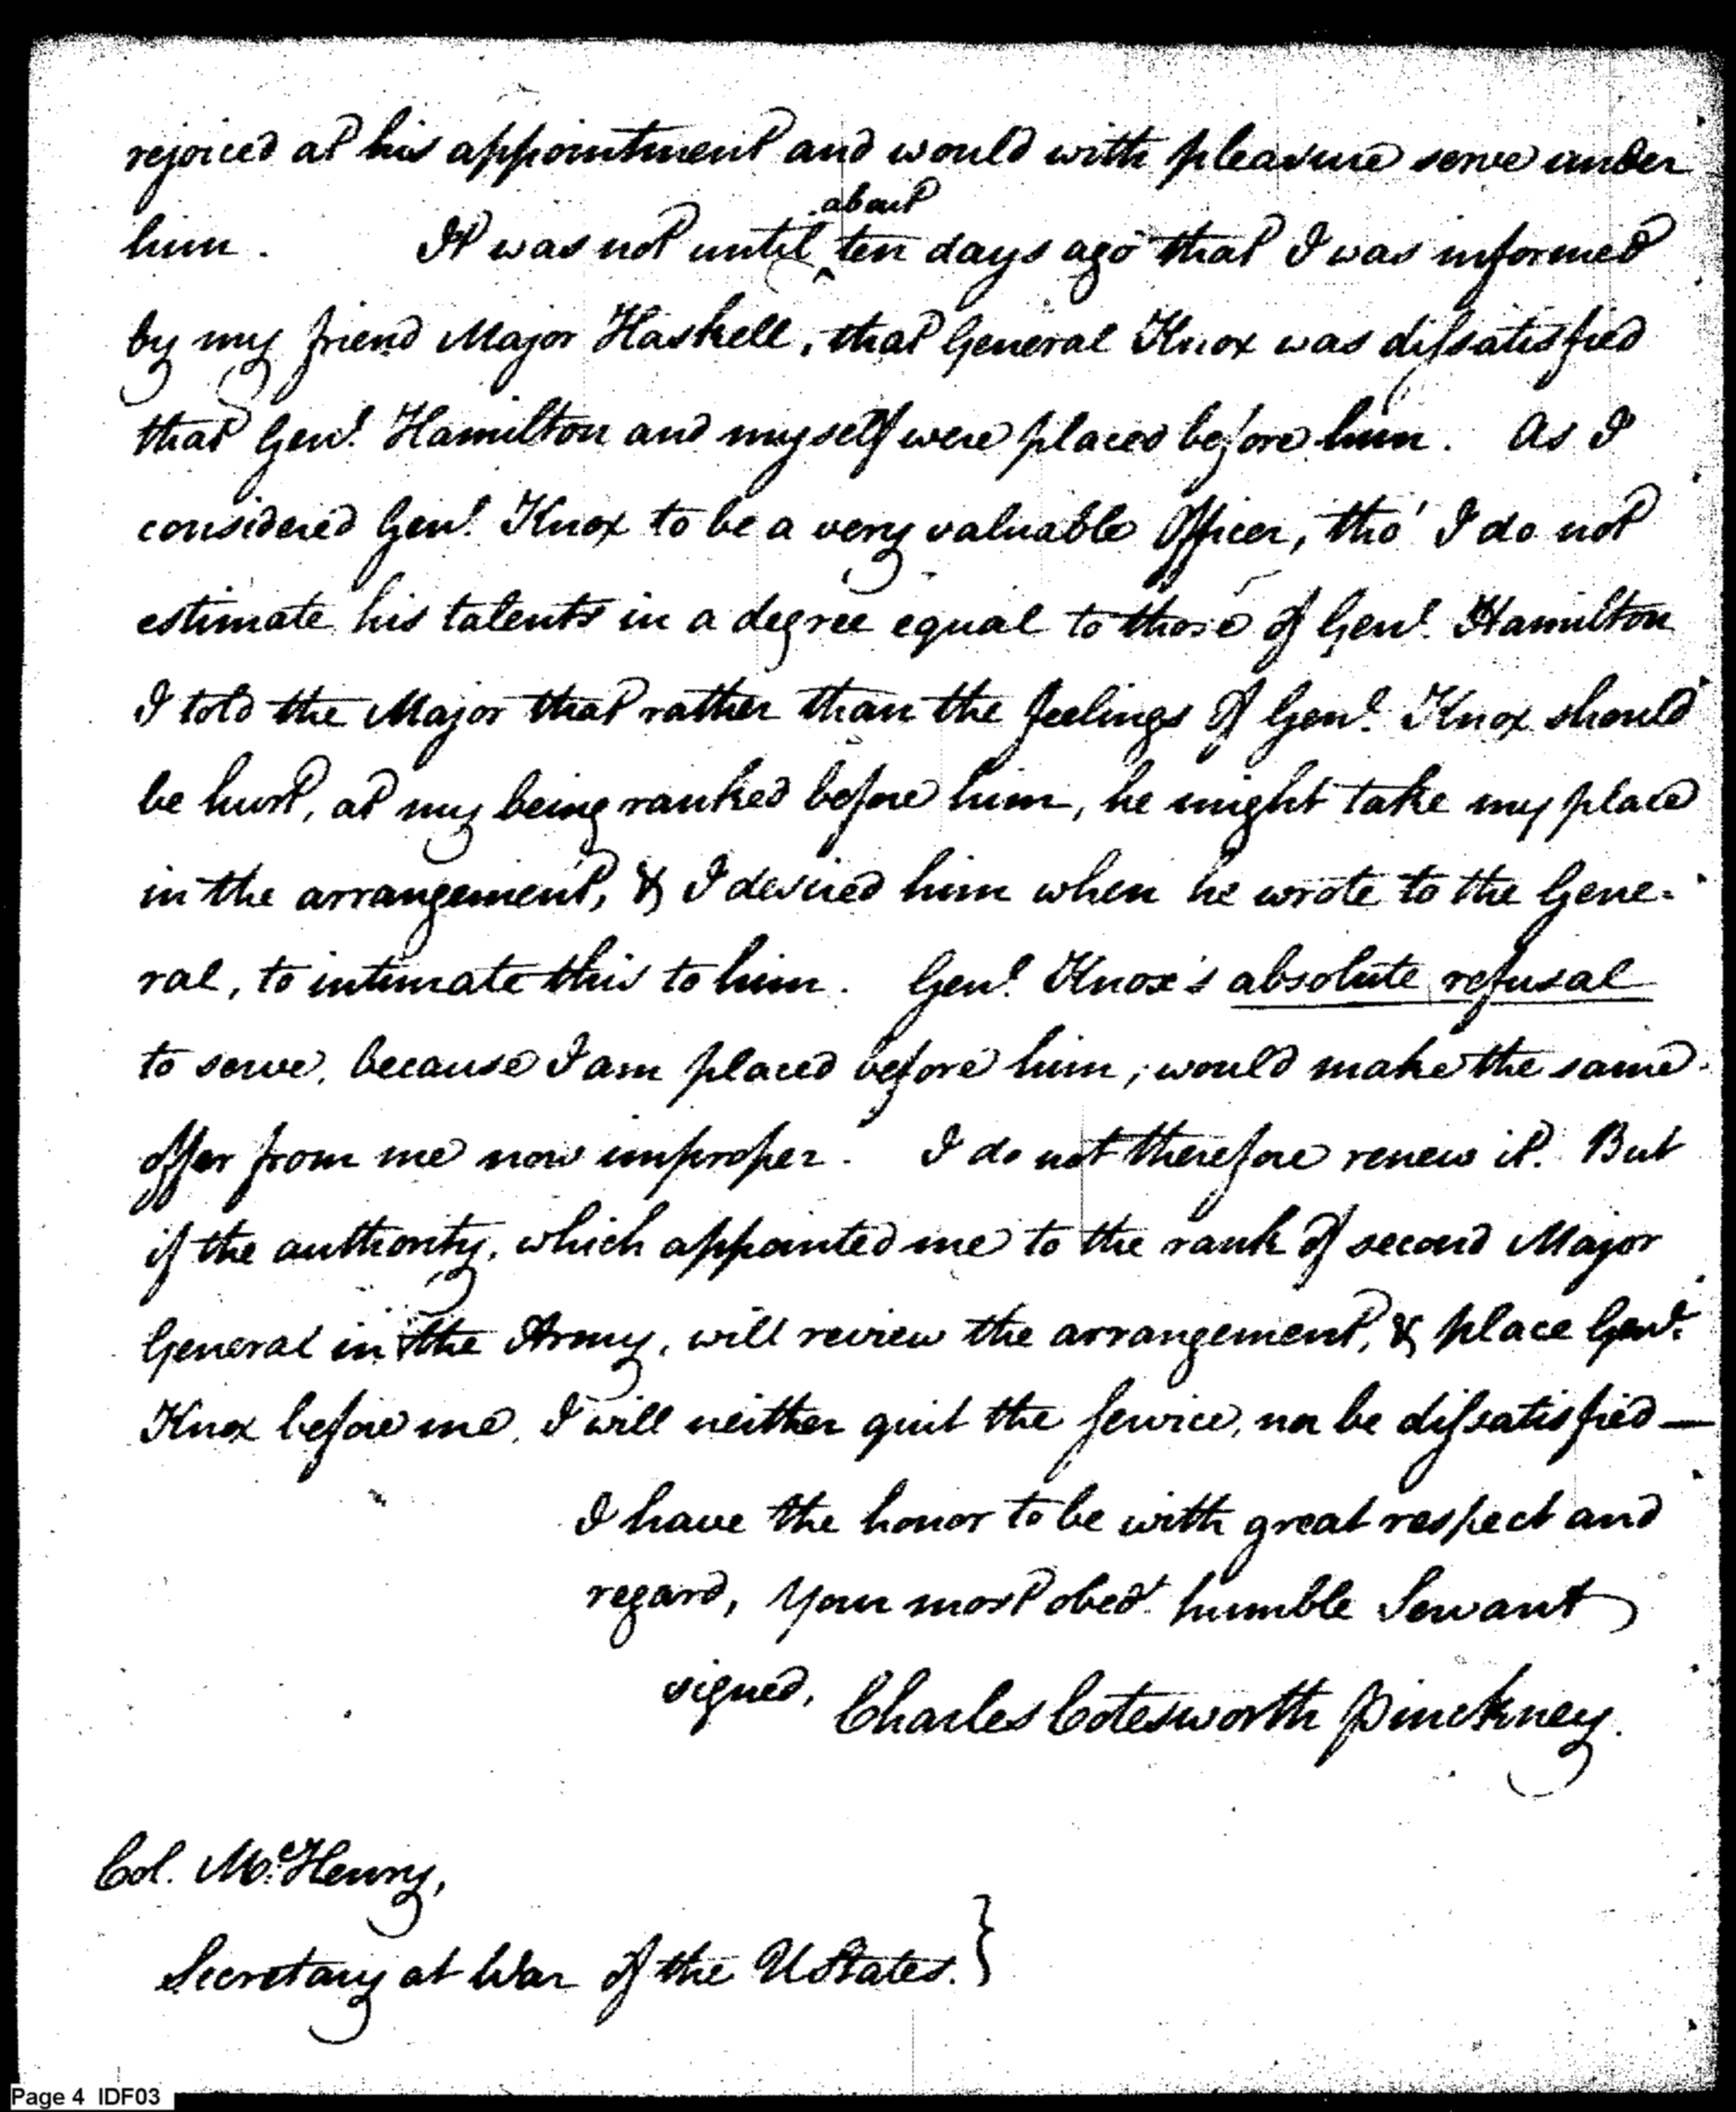 rejoiced at his appointment and would with pleasure serve under
about
him. It was not until ten days ago that I was informed
by my friend Major Haskell, that General Knox was dissatisfied
that Genl. Hamilton and myself were placed before him. As I
considered Genl. Knox to be a very valuable Officer, tho' I do not
estimate his talents in a degree equal to those of Genl. Hamilton
I told the Major that rather than the feelings of Genl. Knox should
be hurt, at my being ranked before him, he might take my place
in the arrangement, & I desired him when he wrote to the Gene-
ral, to intimate this to him. Genl. Knox's absolute refusal
to serve, because I am placed before him, would make the same
offer from me now improper. I do not therefore renew it. But
if the authority, which appointed me to the rank of second Major
General in the Army, will review the arrangement, & place Genl.
Knox before me, I will neither quit the service, nor be dissatisfied—
I have the honor to be with great respect and
regard, Your most obedt. humble Servant
signed, Charles Cotesworth Pinckney.
Col. McHenry,
Secretary at War of the UStates. }
Page 4 IDF03